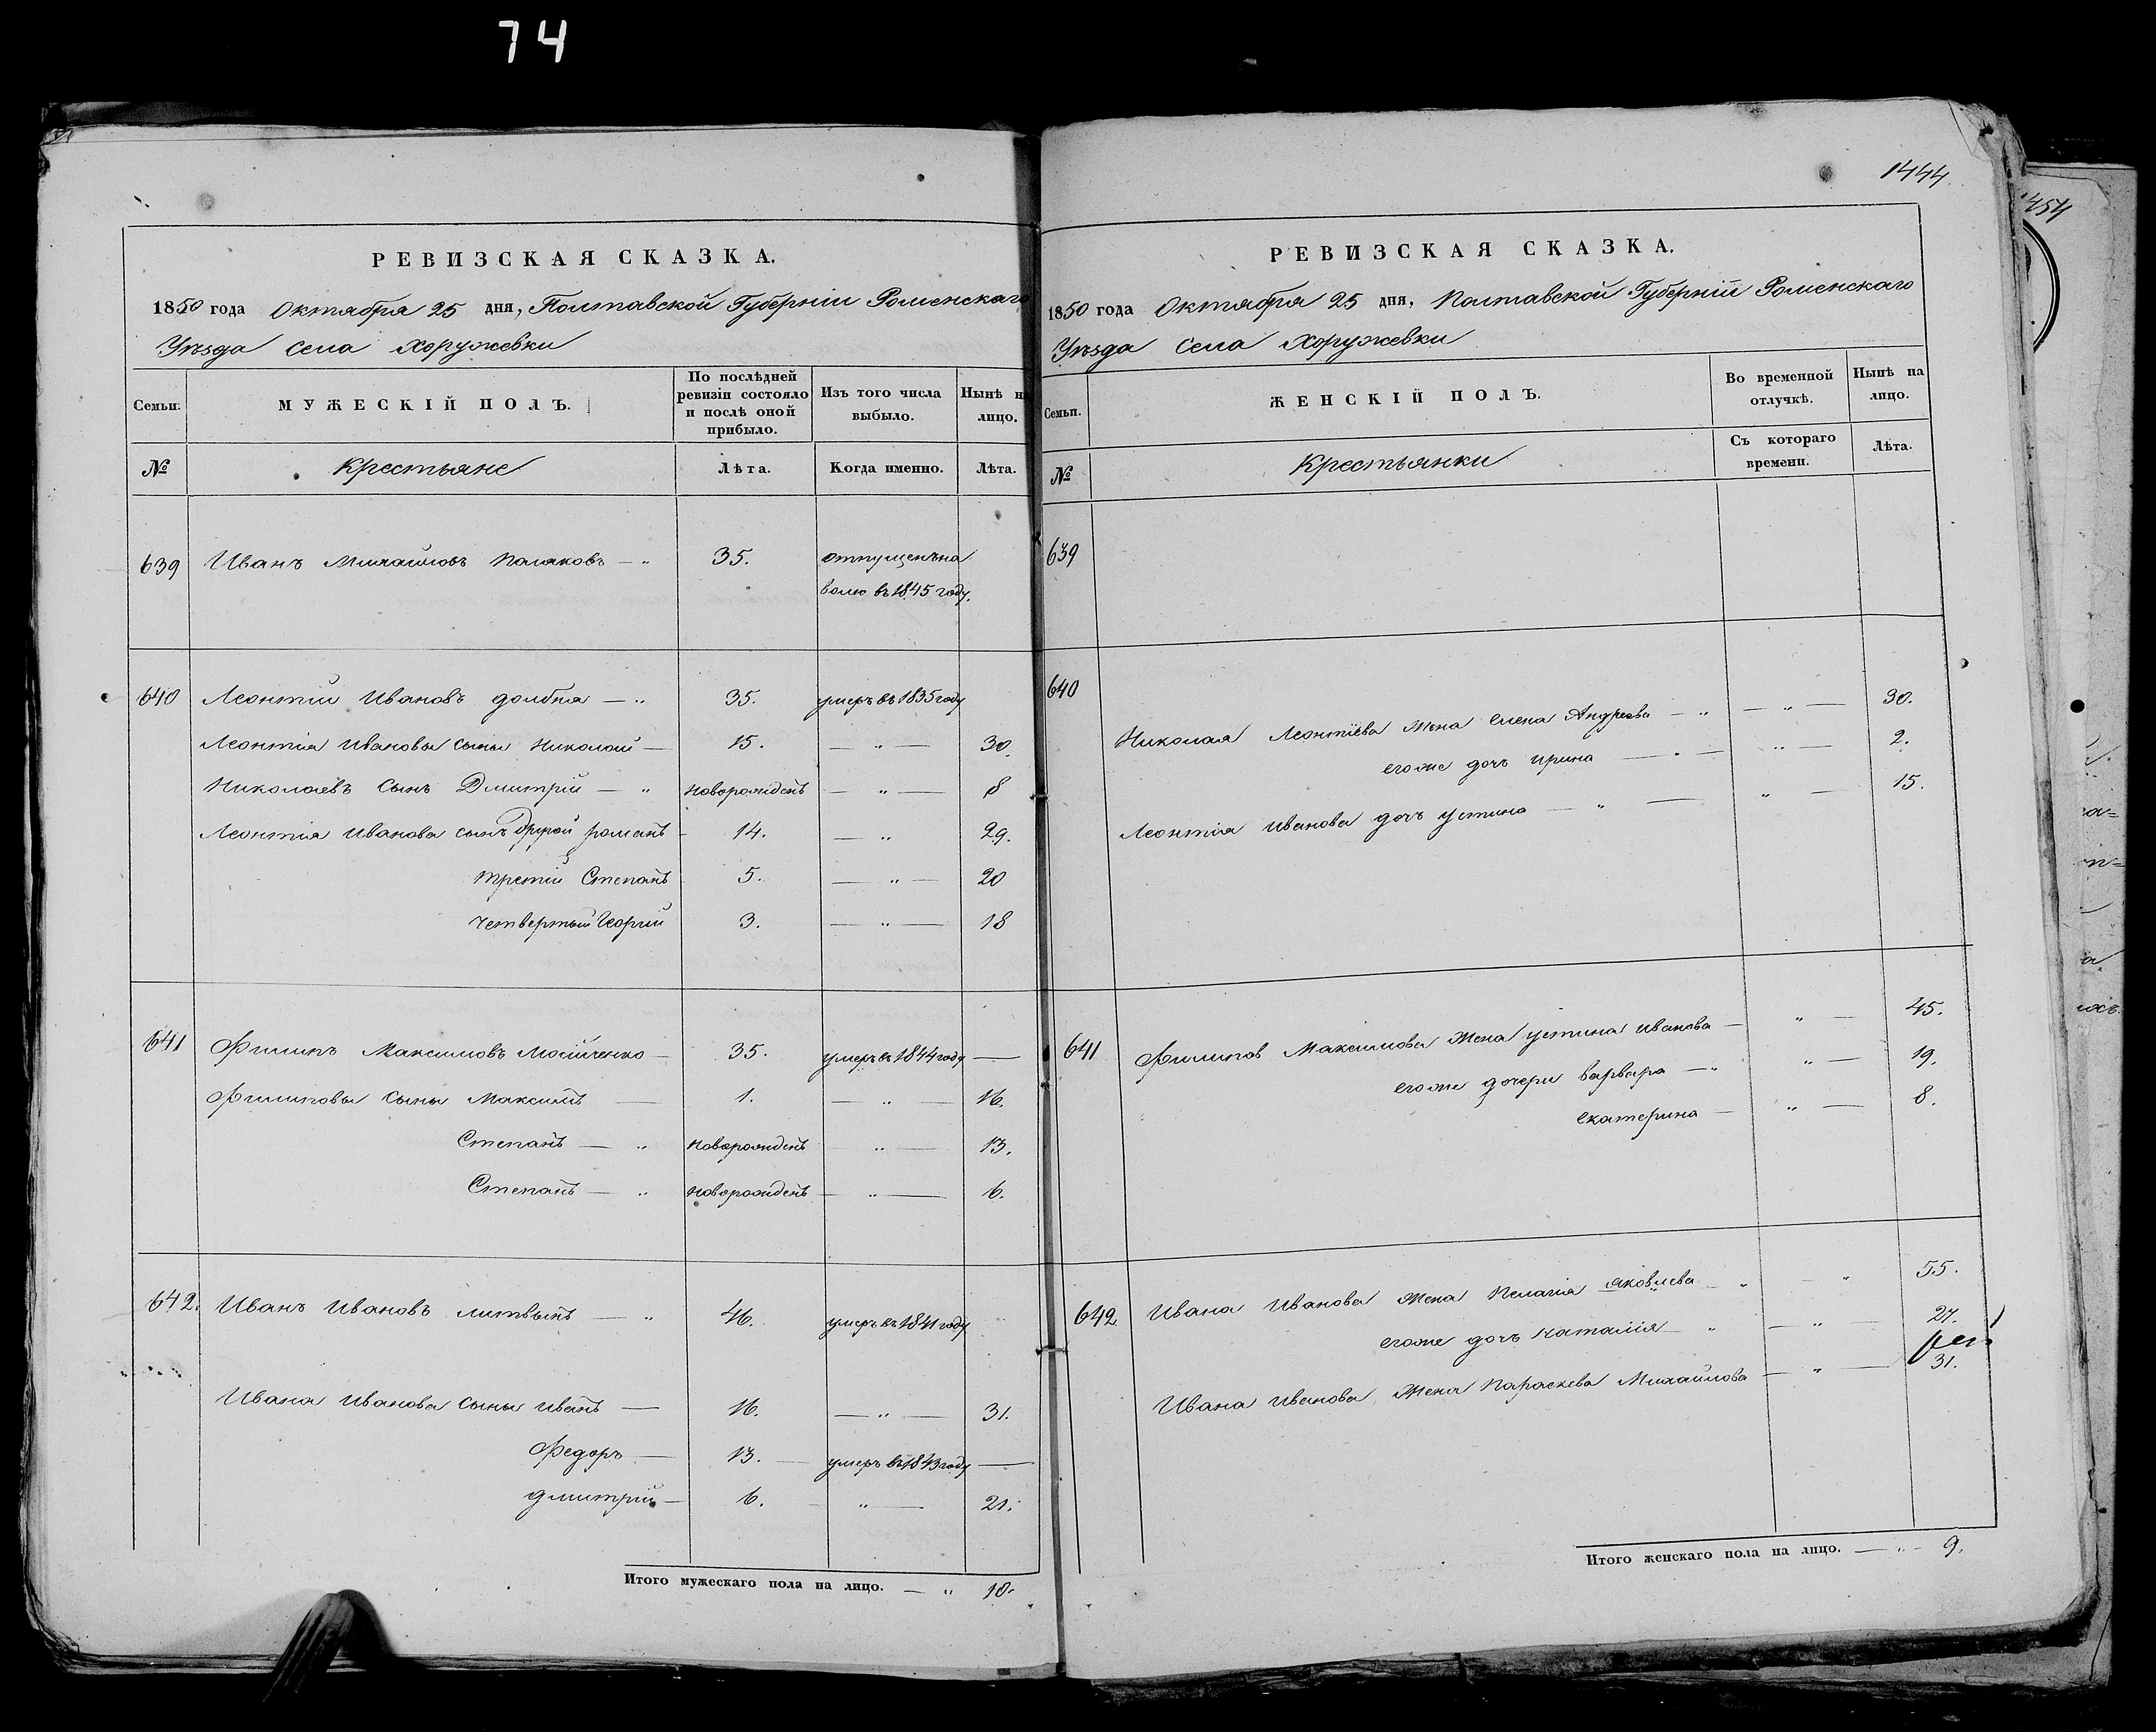 74
1444
1454
РЕВИЗСКАЯ СКАЗКА.
1850 года Октября 25 дня, Полтавской Губерніи Роменскаго
Уѣзда Села Хоружевки
Семьи.
МУЖЕСКІЙ ПОЛЪ.
По послѣдней ревизіи состояло и послѣ оной прибыло.
Изъ того числа выбыло.
Нынѣ на лицо.
№ Крестьяне Лѣта. Когда именно. Лѣта.
639 Иванъ Михайловъ Поляковъ — " 35. отпущенъ на
волю въ 1845 году.
640 Леонтій Ивановъ долбня — " 35. умеръ въ 1835 году
Леонтія Иванова сыны Николай — 15. — " — 30.
Николаевъ Сынъ Дмитрій — " новорожденъ — " — 8
Леонтія Иванова сынъ другой романъ 14. — " 29.
третій Степанъ 5. — " — 20
четвертый Георгій 3. — " — 18
641 Филипъ Максимовъ Моійченко — 35. умеръ въ 1844 году —
Филиповы Сыны Максимъ — 1. — " — 16.
Степанъ — " новорожденъ " — 13.
Степанъ — " новорожденъ — " — 6.
642. Иванъ Ивановъ литвынъ — " 46. умеръ въ 1841 году
Ивана Иванова Сыны иванъ — 16. — " — 31.
Федоръ — 13. — умеръ въ 1843 году —
дмитрій — 6. — " — 21.
Итого мужескаго пола на лицо. — " 10.
РЕВИЗСКАЯ СКАЗКА.
1850 года Октября 25 дня, Полтавской Губерніи Роменскаго
Уѣзда Села Хоружевки
Семьи.
ЖЕНСКІЙ ПОЛЪ.
Во временной отлучкѣ.
Нынѣ на лицо.
№ Крестьянки Съ котораго времени. Лѣта.
639
640
Николая Леонтіева Жена елена Андреева — " — " — 30.
егоже дочь ирина — " — " — 2.
Леонтія иванова дочь устина — " — " — 15.
641 Филипов Максимова Жена устина иванова — " — 45.
егоже дочери варвара — " " — 19.
екатерина — " — 8.
642. Ивана Иванова жена пелагія яковлева " — " 55.
егоже дочь наталія — " — " — 27.
31.
Ивана иванова Жена Параскева Михайлова — " —
Итого женскаго пола на лицо. — " — 9.